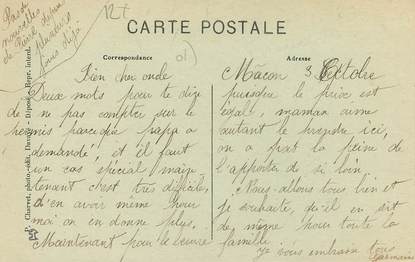 Pas de
nouvelles
de Pierre depuis
plusieurs
jours déjà
12T
CARTE POSTALE
Correspondance
Adresse
01
Bien cher oncle
Deux mots pour te dire
de ne pas compter sur le
permis parceque papa a
demandé, et il faut
un cas spécial main
tenant c'est très difficile,
d'en avoir même pour
moi on en donne plus.
Maintenant pour le beurre
Mâcon 3 Octobre
puisque le prix est
égal, maman aime
autant le prendre ici,
on a pas la peine de
l'apporter de si loin.
Nous allons tous bien et
je souhaite, qu'il en soit
de même pour toute la
famille.
Je vous embrasse tous
Germain
Charvet, photo-édit.
Repr. interd.